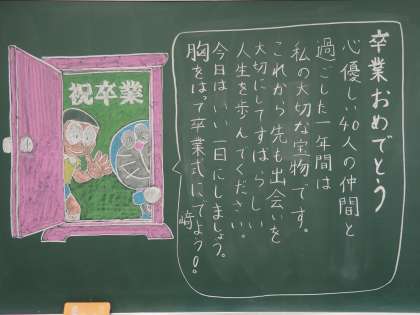 祝卒業
卒業おめでとう
心優しい40人の仲間と
過ごした一年間は
私の大切な宝物です。
これから先も出会いを
大切にしてすばらしい
人生を歩んでください。
今日はいい一日にしましょう。
胸をはって卒業式にでよう!